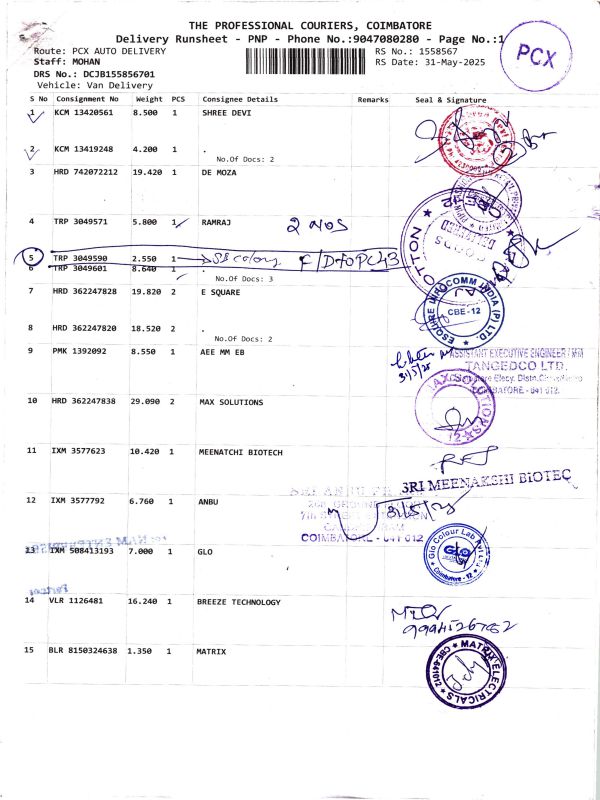 THE PROFESSIONAL COURIERS, COIMBATORE
Delivery Runsheet - PNP - Phone No.:9047080280 - Page No.:1
PCX
Route: PCX AUTO DELIVERY
RS No.: 1558567
Staff: MOHAN
RS Date: 31-May-2025
DRS No.: DCJB155856701
Vehicle: Van Delivery
S No Consignment No Weight PCS Consignee Details Remarks Seal & Signature
1 KCM 13420561 8.500 1 SHREE DEVI
2 KCM 13419248 4.200 1 .
No.Of Docs: 2
3 HRD 742072212 19.420 1 DE MOZA
4 TRP 3049571 5.800 1 RAMRAJ 2 nos
COTTON
5 TRP 3049590 2.550 1
6 TRP 3049601 8.640 1 .
No.Of Docs: 3
7 HRD 362247828 19.820 2 E SQUARE
ESQUIRE INFOCOMM INDIA (P) LTD.
CBE - 12
8 HRD 362247820 18.520 2 .
No.Of Docs: 2
9 PMK 1392092 8.550 1 AEE MM EB
31/5/25
ASSISTANT EXECUTIVE ENGINEER / MM
TANGEDCO LTD.
COIMBATORE - 641 012.
10 HRD 362247838 29.090 2 MAX SOLUTIONS
11 IXM 3577623 10.420 1 MEENATCHI BIOTECH
SRI MEENAKSHI BIOTEC
12 IXM 3577792 6.760 1 ANBU
31/5/25
COIMBATORE - 641 012
13 IXM 508413193 7.000 1 GLO
Glo Colour Lab Pvt Ltd
GLO
Coimbatore - 12
14 VLR 1126481 16.240 1 BREEZE TECHNOLOGY
9994526782
15 BLR 8150324638 1.350 1 MATRIX
MATRIX ELECTRICALS
CBE-641012